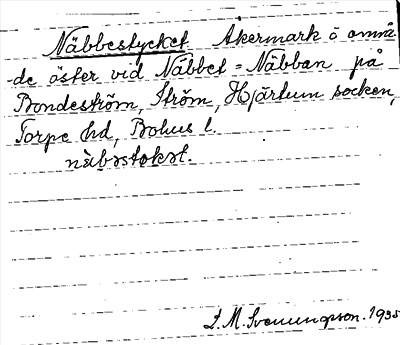 Näbbestycket Åkermark ö områ
-de öster vid Näbbet = Näbban på
Bondeström, Ström, Hjärtum socken,
Torpe hd, Bohus l.
näbəstøkət.
L. M. Svenungsson. 1935